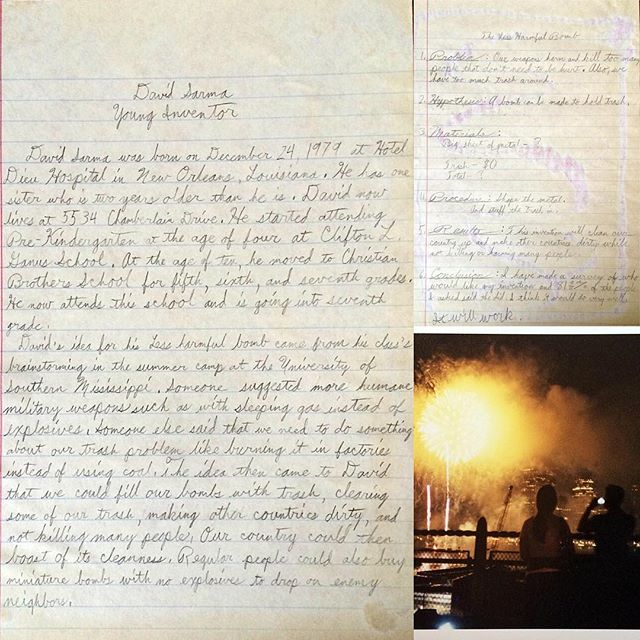 David Sarma
Young Inventor
David Sarma was born on December 24, 1979 at Hotel
Dieu Hospital in New Orleans, Louisiana. He has one
sister who is two years older than he is. David now
lives at 5534 Chamberlain Drive. He started attending
Pre-Kindergarten at the age of four at Clifton L.
Ganus School. At the age of ten, he moved to Christian
Brothers School for fifth, sixth, and seventh grades.
He now attends this school and is going into seventh
grade.
David's idea for his less harmful bomb came from his class's
brainstorming in the summer camp at the University of
Southern Mississippi. Someone suggested more humane
military weapons such as with sleeping gas instead of
explosives. Someone else said that we need to do something
about our trash problem like burning it in factories
instead of using coal. The idea then came to David
that we could fill our bombs with trash, clearing
some of our trash, making other countries dirty, and
not killing many people. Our country could then
boast of its cleanness. Regular people could also buy
miniature bombs with no explosives to drop on enemy
neighbors.
The Less Harmful Bomb
1. Problem: Our weapons harm and kill too many
people that don't need to be hurt. Also, we
have too much trash around.
2. Hypothesis: A bomb can be made to hold trash.
3. Materials:
Big sheet of metal - ?
Trash - $0
Total - ?
4. Procedure: Shape the metal.
And stuff the trash in.
5. Results: This invention will clean our
country up and make other countries dirty while
not killing or harming many people.
6. Conclusion: I have made a survey of who
would like my invention and % of the people
I asked said they did. I think it would do very well.
It will work.